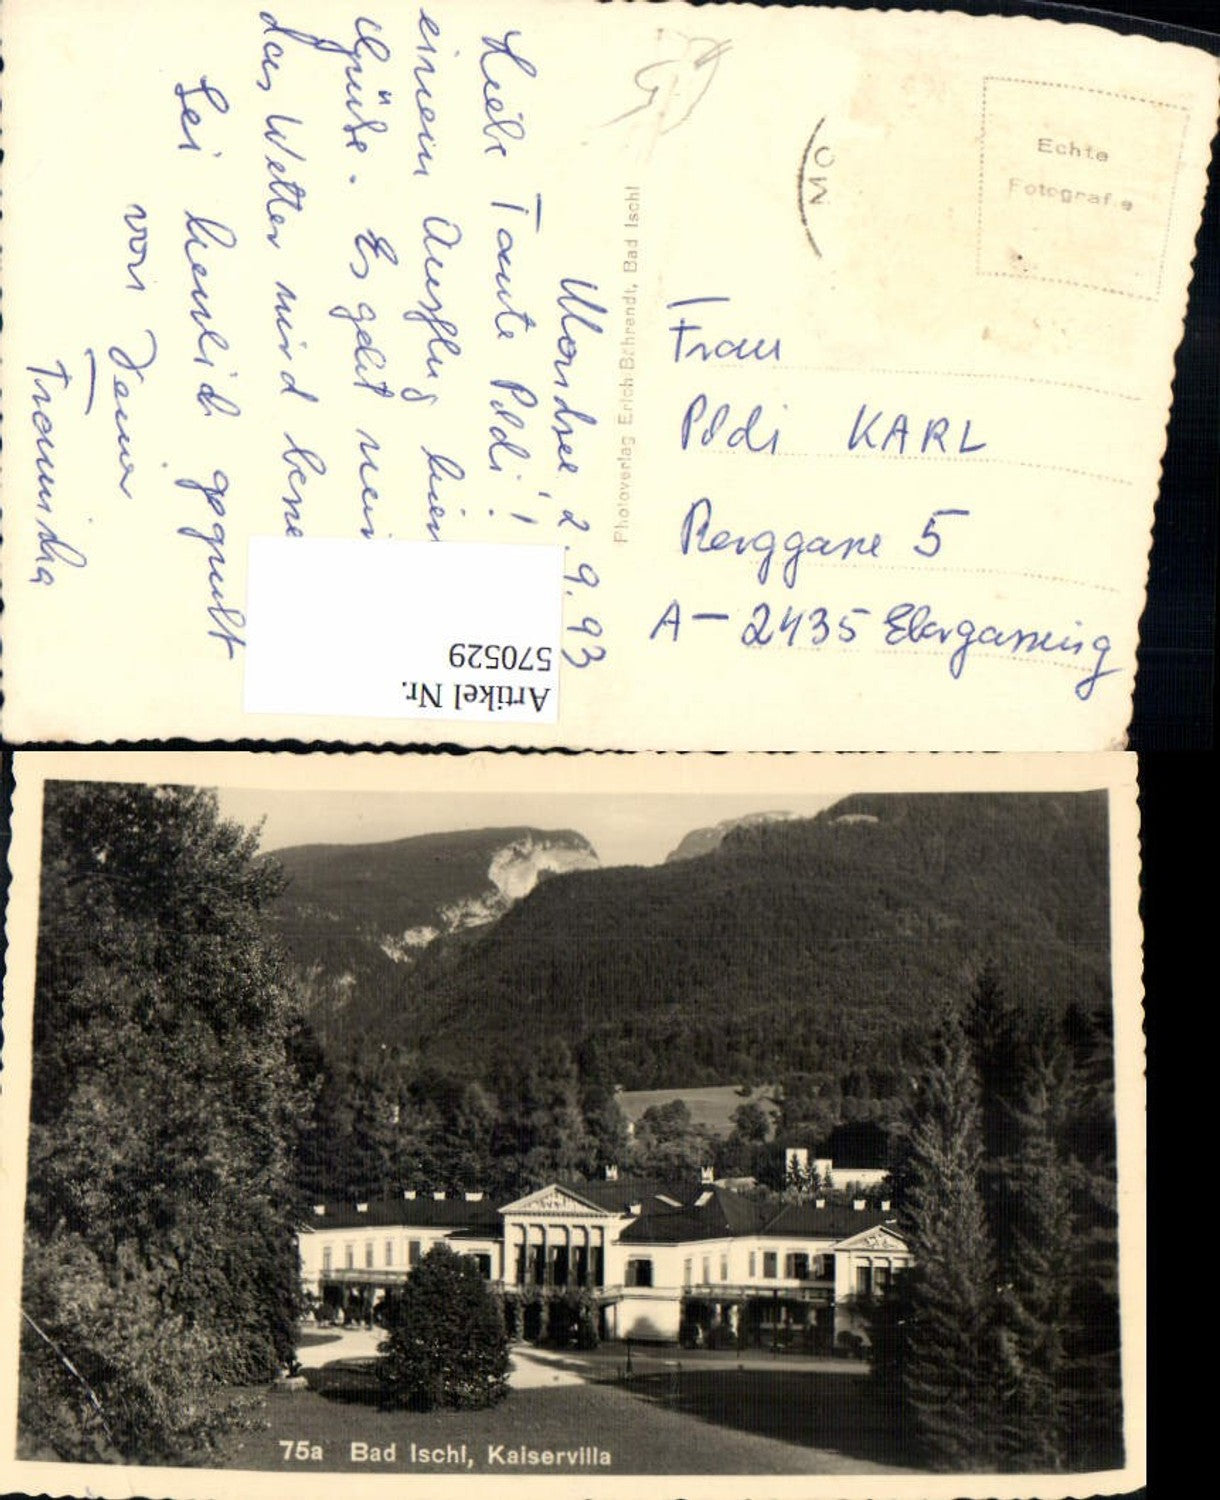 Mondsee 2.9.93
Liebe Tante Poldi!
einem Ausflug
Grüße. Es geht
das Wetter wird
Sei herzlich gegrüßt
von Deiner
Traundha
Photoverlag Erich Bährendt, Bad Ischl
Echte
Fotografie
MO
Frau
Poldi KARL
Berggasse 5
A-2435 Ebergassing
Artikel Nr.
570529
75a Bad Ischl, Kaiservilla